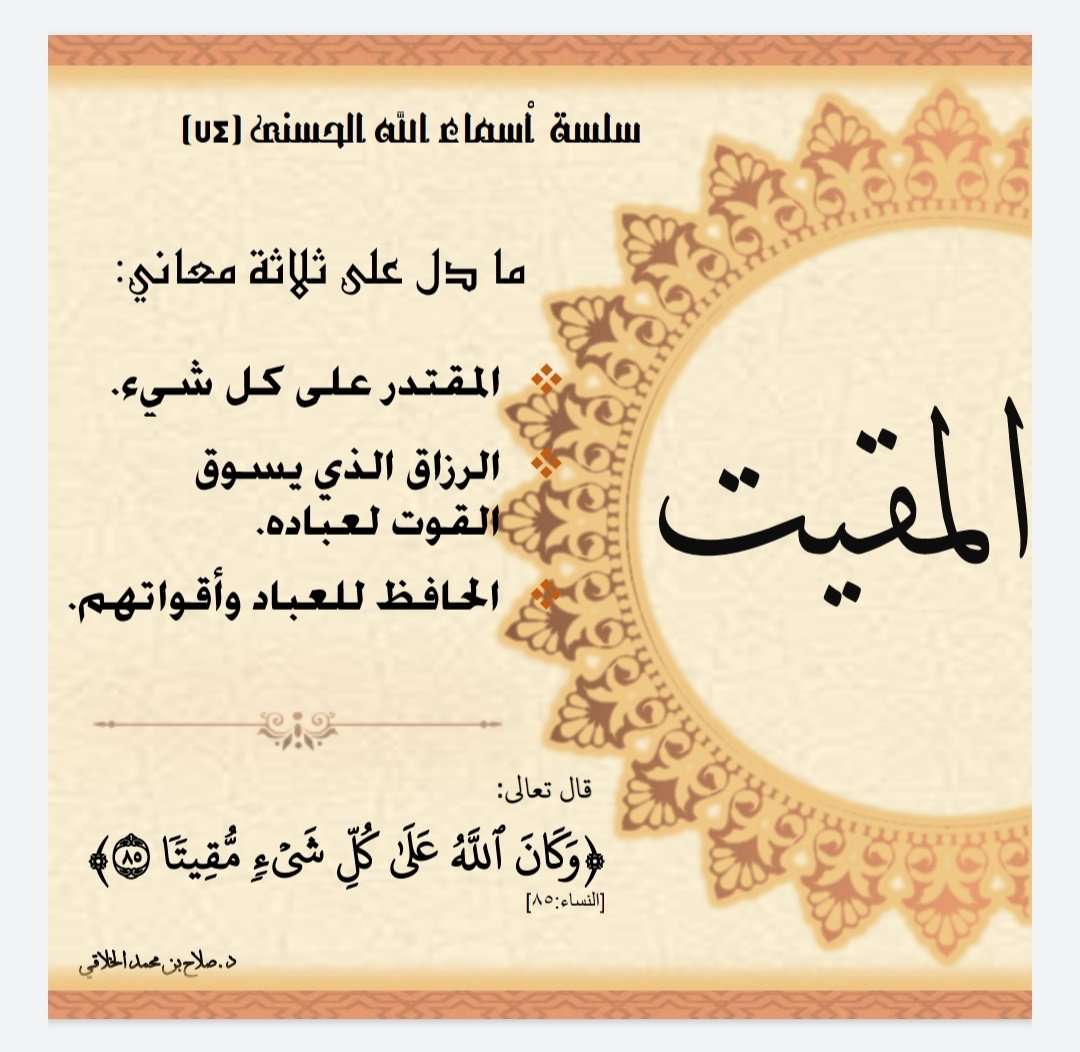 سلسة أسماء الله الحسنى (٧٤)
المقيت
ما دل على ثلاثة معاني:
المقتدر على كل شيء.
الرزاق الذي يسوق
القوت لعباده.
الحافظ للعباد وأقواتهم.
قال تعالى:
﴿وَكَانَ ٱللَّهُ عَلَىٰ كُلِّ شَيۡءٖ مُّقِيتٗا ٨٥﴾
[النساء:٨٥]
د.صلاح بن محمد الخلاقي